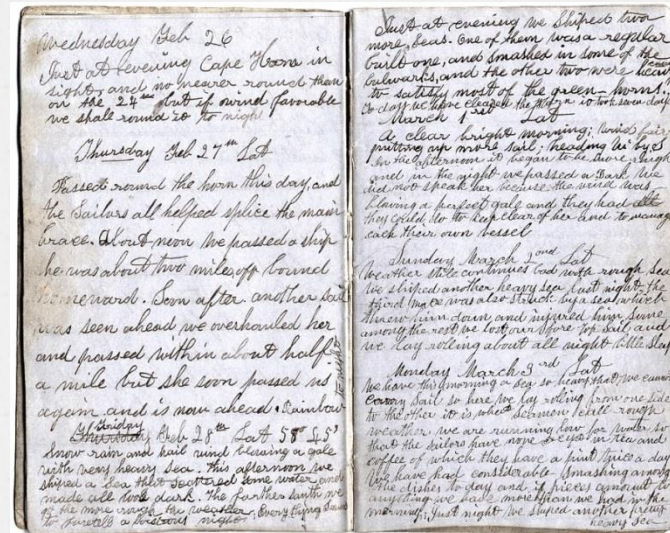 Wednesday Feb 26
Just at evening Cape Horn in
sight and no nearer round than
on the 24th but if wind favorable
we shall round it to night
Thursday Feb 27th Lat
Passed round the horn this day and
the Sailors all helped splice the main
brace. About noon we passed a ship
she was about two miles off bound
homeward. Soon after another sail
was seen ahead we overhauled her
and passed within about half
a mile but she soon passed us
again and is now ahead. Rainbow
to night
Friday
Thursday Feb 28th Lat 58° 45'
Snow rain and hail wind blowing a gale
with very heavy sea. This afternoon we
shiped a Sea that scattered some water and
made all look dark. The farther south we
the more rough the weather. Every thing
to foretell a boistrous night
Just at evening we Shiped two
more Seas. One of them was a regular
built one, and smashed in some of the
bulwarks, and the other two were heavy
to satisfy most of the green-horns.
to day we have cleared the Horn it took seven days
March 1rst Lat
A clear bright morning; wind fair
putting up more sail; heading N by S
In the afternoon it began to be more rough
and in the night we passed a Bark We
did not speak her because the wind was
blowing a perfect gale and they had all
they could do to keep clear of her and to manage
each their own vessel
Sunday March 2nd Lat
Weather still continues bad with rough Sea
we shiped another heavy sea last night, the
third mate was also struck by a sea, which
threw him down and injured him some
among the rest we lost our fore top sail, and
we lay rolling about all night little sleep
Monday March 3rd Lat
We have this morning a Sea so heavy that we cannot
carry sail so here we lay rolling from one side
to the other it is what seamen call rough
weather we are running low for water so
that the sailors have none except in tea and
coffee of which they have a pint twice a day
We have had considerable smashing among
the dishes to day and if pieces amount to
anything we have more than we had in the
morning; Just night we shiped another pretty
heavy sea